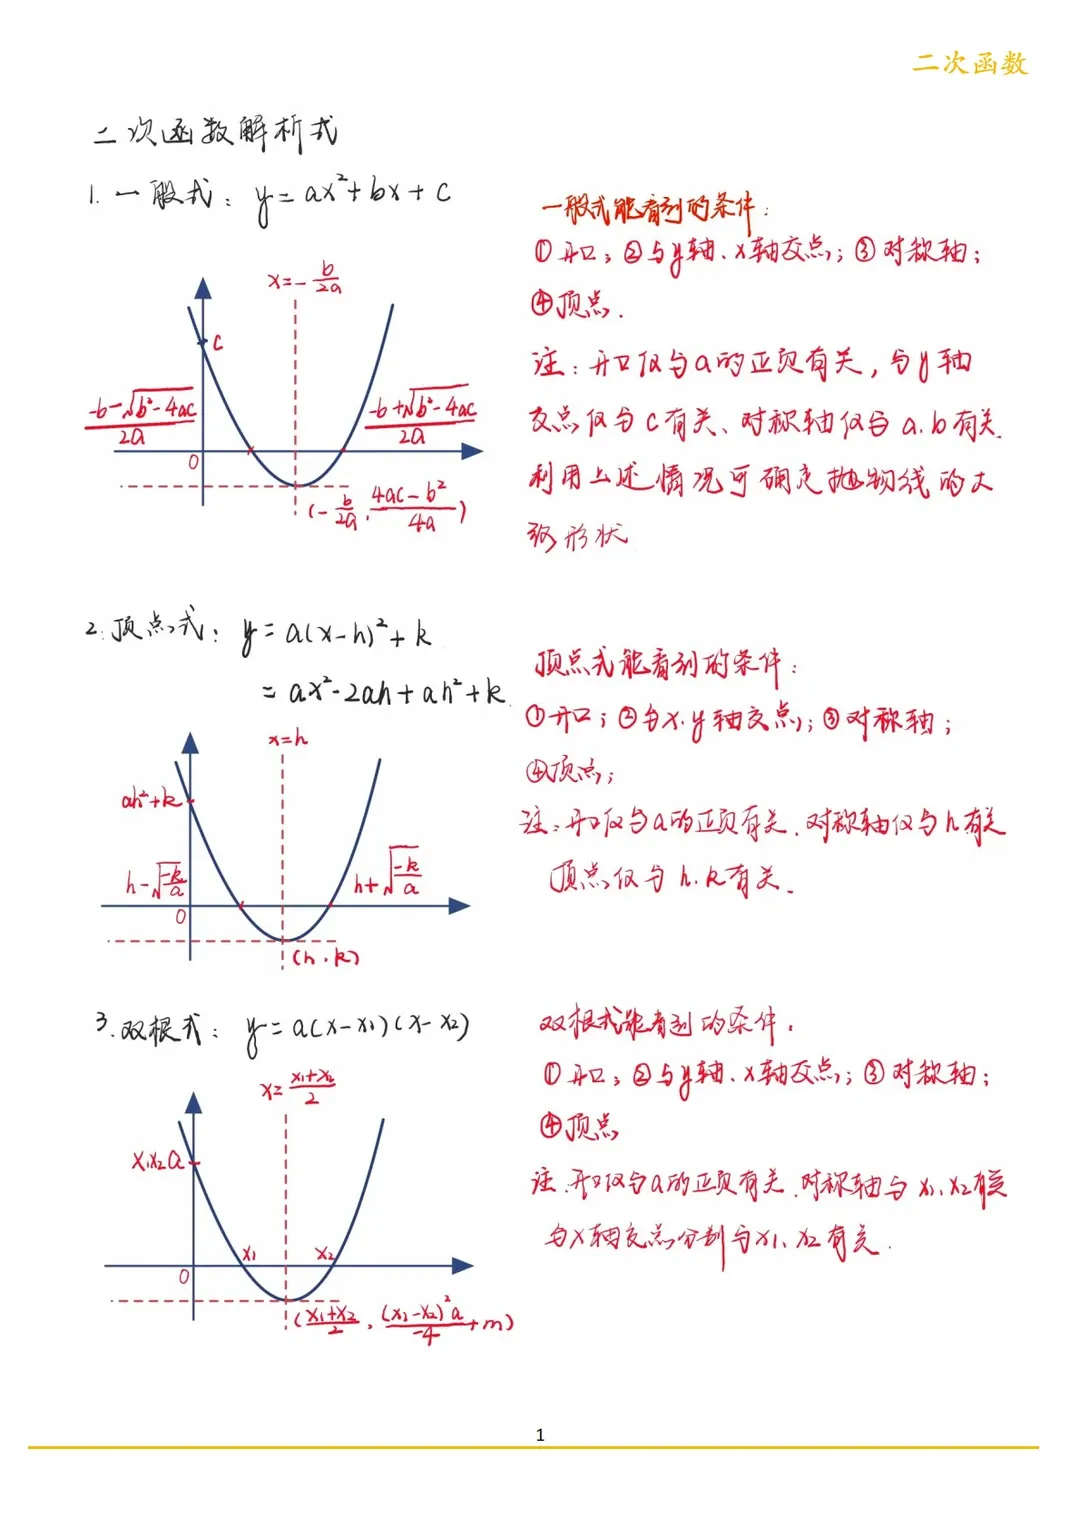 二次函数
二次函数解析式
1. 一般式：y=ax²+bx+c
x=-b/2a
c
(-b-√(b²-4ac))/2a
(-b+√(b²-4ac))/2a
0
(-b/2a, (4ac-b²)/4a)
一般式能看到的条件：
①开口；②与y轴、x轴交点；③对称轴；
④顶点.
注：开口仅与a的正负有关，与y轴
交点仅与c有关、对称轴仅与a.b有关.
利用上述情况可确定抛物线的大
致形状
2. 顶点式：y=a(x-h)²+k
=ax²-2ah+ah²+k
x=h
ah²+k
h-√(-k/a)
h+√(-k/a)
0
(h,k)
顶点式能看到的条件：
①开口；②与x.y轴交点；③对称轴；
④顶点；
注：开口仅与a的正负有关、对称轴仅与h有关
顶点仅与h.k有关.
3. 双根式：y=a(x-x₁)(x-x₂)
x=(x₁+x₂)/2
x₁x₂a
x₁
x₂
0
((x₁+x₂)/2, (x₁-x₂)²a/-4+m)
双根式能看到的条件：
①开口；②与y轴、x轴交点；③对称轴；
④顶点
注.开口仅与a的正负有关.对称轴与x₁、x₂有关
与x轴交点分别与x₁、x₂有关.
1